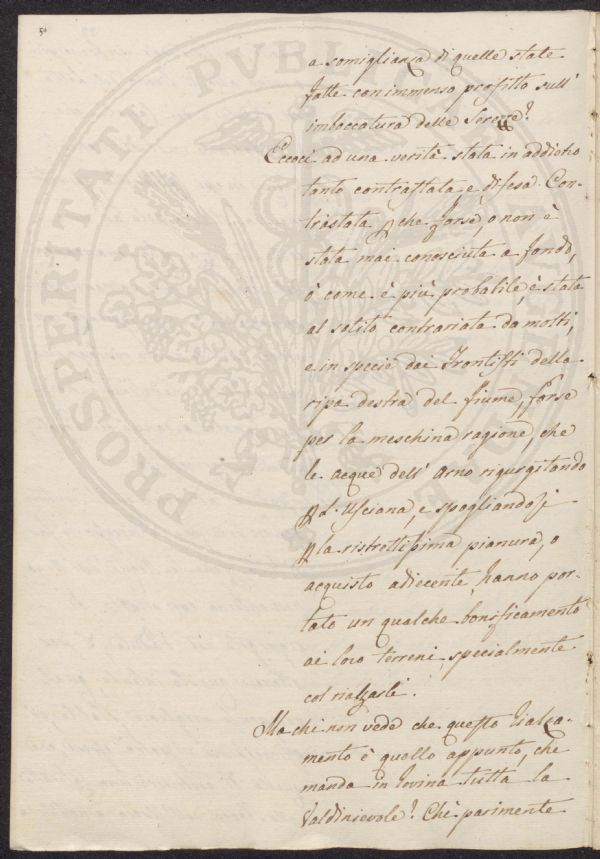 a somiglianza di quelle state
fatte con immenso profitto sull'
imboccatura delle Serezze?
Eccoci ad una verità stata in addietro
tanto contrattata e difesa. Con-
trastata p che forse, o non è
stata mai conosciuta a fondo,
ò come è più probabile, è stata
al solito contrariata da molti,
e in specie dai Frontisti della
ripa destra del fiume, forse
per la meschina ragione, che
le acque dell' Arno rigurgitando
p L'Usciana, e spogliandosi
p la ristrettissima pianura, o
acquisto adiecente, hanno por-
tato un qualche bonificamento
ai loro terreni specialmente
col rialzarli.
Ma chi non vede che questo rialza-
mento è quello appunto, che
manda in rovina tutta la
Valdinievole? Chi parimente
PROSPERITATI PUBLICAE